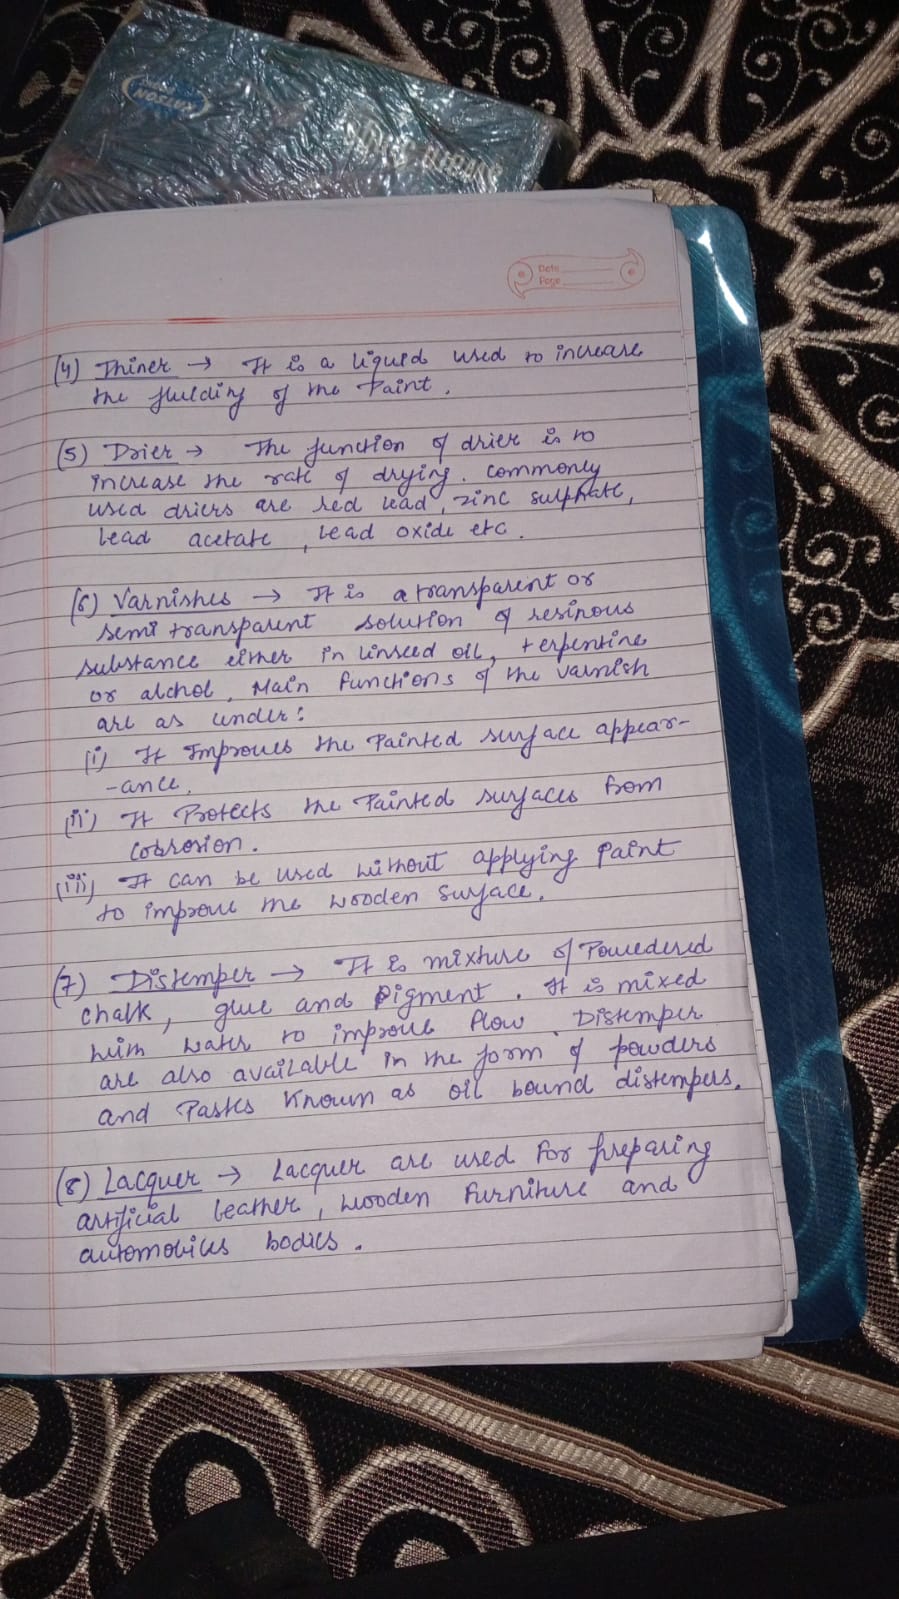 Date
Page
(4) Thiner → It is a liquid used to increase
the fluiding of the Paint.
(5) Drier → The function of drier is to
increase the rate of drying. Commonly
used driers are red lead, zinc sulphate,
lead acetate, lead oxide etc.
(6) Varnishes → It is a transparent or
semi transparent solution of resinous
substance either in linseed oil, terpentine
or alchol. Main functions of the varnish
are as under:
(i) It Improves the Painted surface appear-
-ance.
(ii) It Protects the Painted surfaces from
corrosion.
(iii) It can be used without applying paint
to improve the wooden surface.
(7) Distemper → It is mixture of Powedered
chalk, glue and Pigment. It is mixed
with water to improve flow. Distemper
are also available in the form of powders
and Pastes known as oil bound distempers.
(8) Lacquer → Lacquer are used for preparing
artificial leather, wooden furniture and
automobiles bodies.